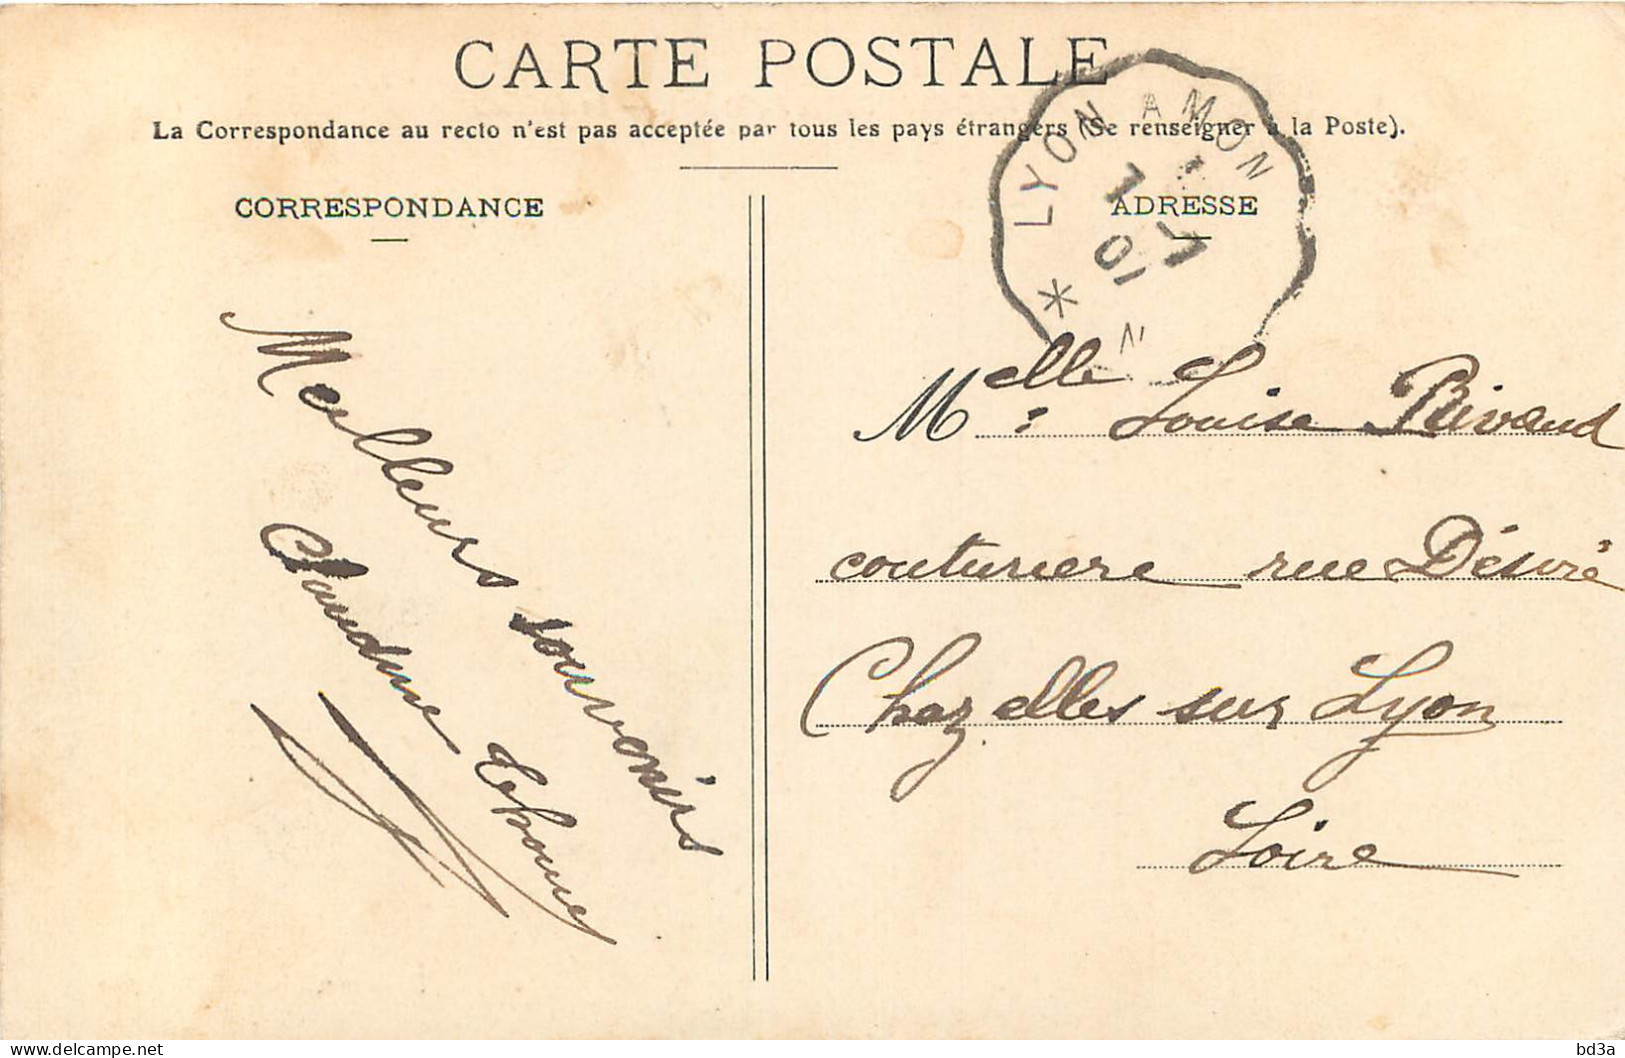 CARTE POSTALE
La Correspondance au recto n'est pas acceptée par tous les pays étrangers (Se renseigner à la Poste).
CORRESPONDANCE
ADRESSE
LYON A MON
Meilleurs souvenirs
Claudine
Melle Louise Rivaud
couturiere rue Désiré
Chazelles sur Lyon
Loire
bd3a